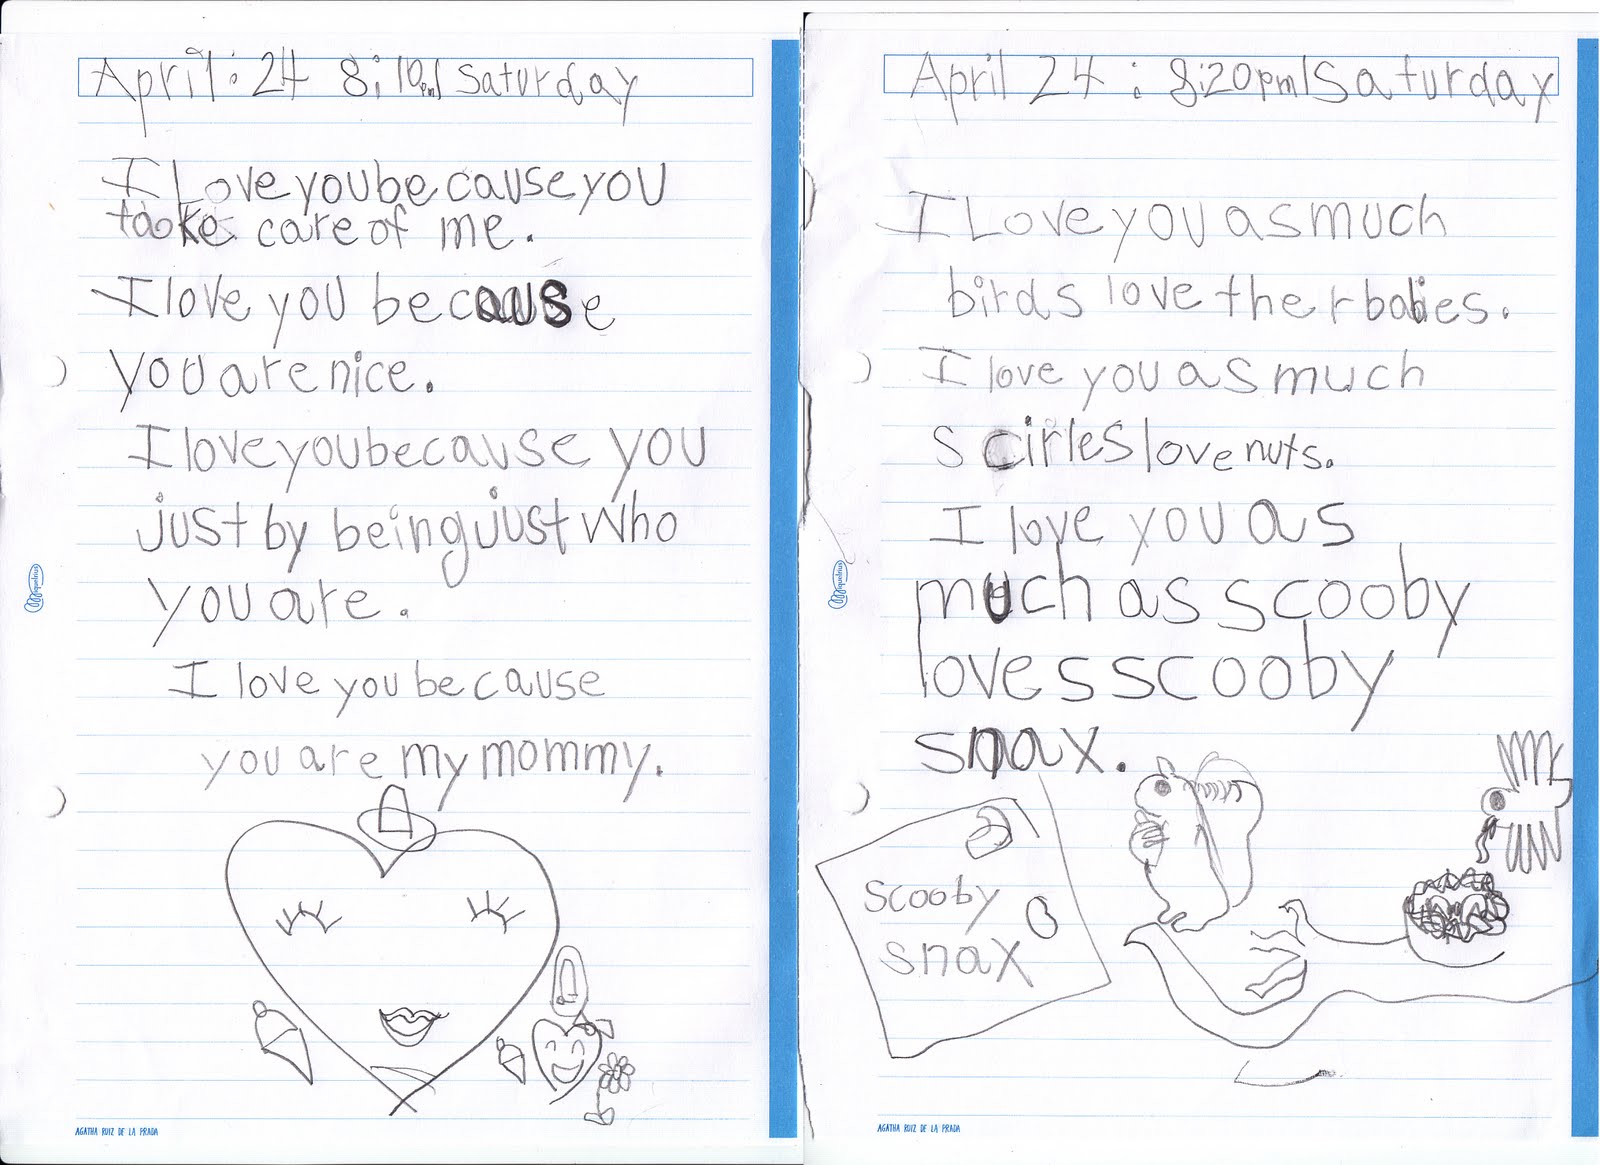 April: 24 8:10pm/Saturday
I Love you be cause you
take care of me.
I love you because
you are nice.
I love you because you
just by being just who
you are.
I love you be cause
you are my mommy.
AGATHA RUIZ DE LA PRADA
April 24 : 8:20pm/Saturday
I Love you as much
birds love ther babies.
I love you as much
scirles love nuts.
I love you as
much as scooby
loves scooby
snax.
scooby
snax
miquelrius
miquelrius
AGATHA RUIZ DE LA PRADA